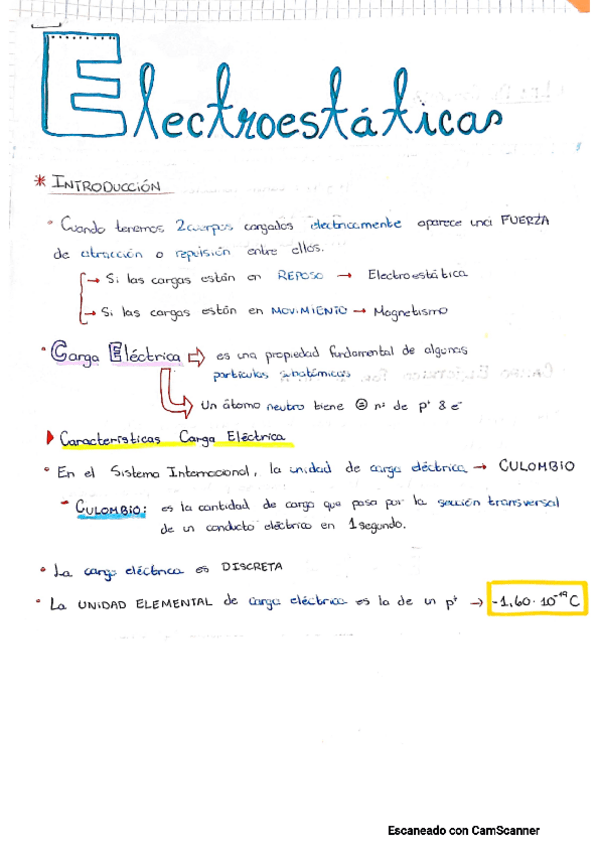 Electroestáticas
* INTRODUCCIÓN
• Cuando tenemos 2 cuerpos cargados electricamente aparece una FUERZA
de atracción o repulsión entre ellos.
→ Si las cargas están en REPOSO → Electroestática
→ Si las cargas están en MOVIMIENTO → Magnetismo
• Carga Eléctrica ⇨ es una propiedad fundamental de algunas
partículas subatómicas
Un átomo neutro tiene ⊜ nº de p⁺ & e⁻
Características Carga Eléctrica
• En el Sistema Internacional, la unidad de carga eléctrica → CULOMBIO
- CULOMBIO: es la cantidad de carga que pasa por la sección transversal
de un conducto eléctrico en 1 segundo.
• La carga eléctrica es DISCRETA
• La UNIDAD ELEMENTAL de carga eléctrica es la de un p⁺ → -1,60·10⁻¹⁹ C
Escaneado con CamScanner